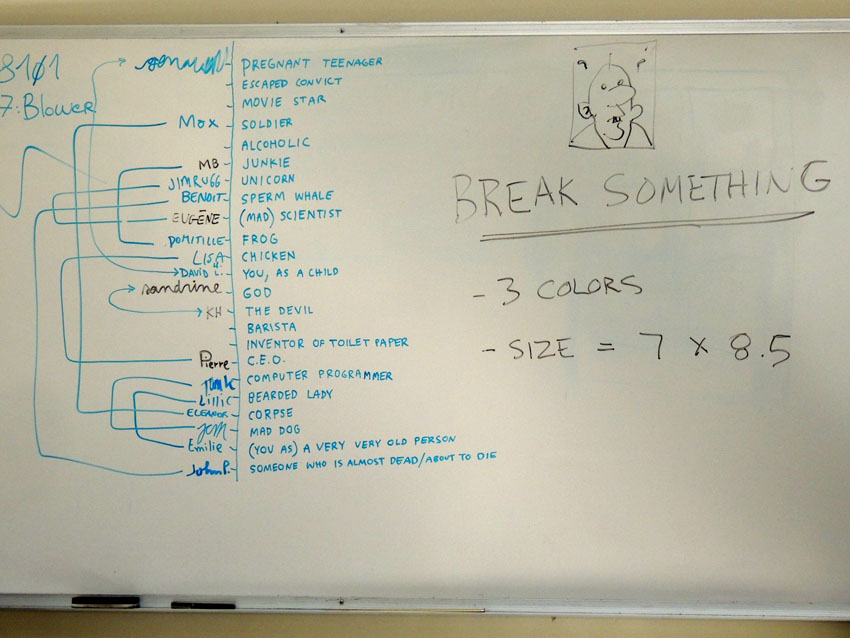 8101
7:Blower
PREGNANT TEENAGER
ESCAPED CONVICT
MOVIE STAR
Max SOLDIER
ALCOHOLIC
MB JUNKIE
JIM RUGG UNICORN
BENOIT SPERM WHALE
EUGĒNE (MAD) SCIENTIST
DOMITILLE FROG
LISA CHICKEN
DAVID L. YOU, AS A CHILD
sandrine GOD
KH THE DEVIL
BARISTA
INVENTOR OF TOILET PAPER
Pierre C.E.O.
COMPUTER PROGRAMMER
Lillie BEARDED LADY
ELEANOR CORPSE
Jom MAD DOG
Emilie (YOU AS) A VERY VERY OLD PERSON
John P. SOMEONE WHO IS ALMOST DEAD/ABOUT TO DIE
BREAK SOMETHING
- 3 COLORS
- SIZE = 7 x 8.5